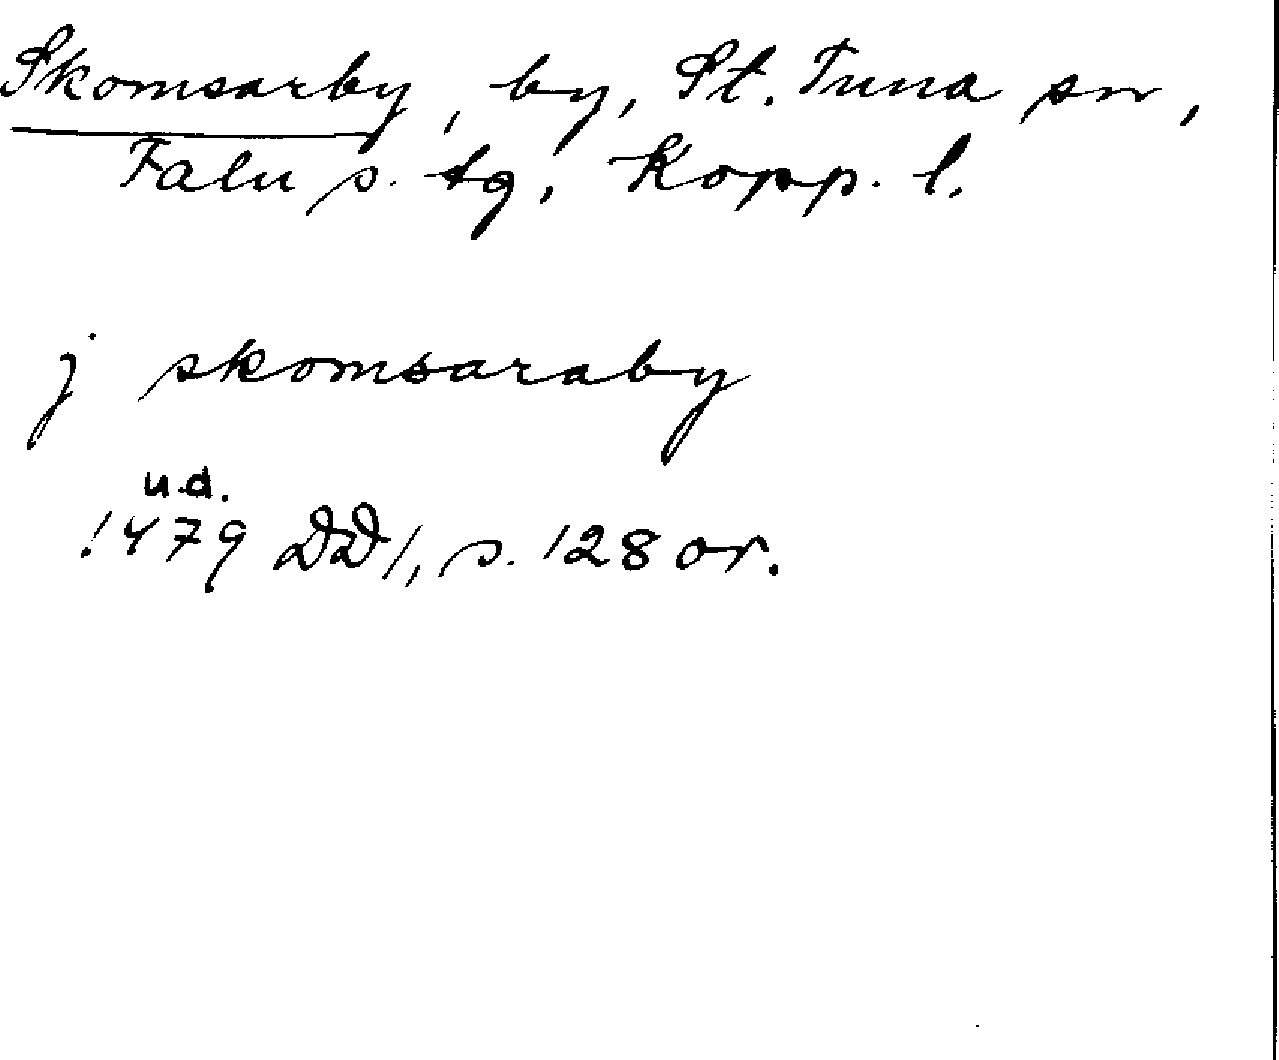 Skomsarby, by, St. Tuna sn,
Falu s. tg, Kopp. l.
j skomsaraby
u.d.
1479 DD1, s. 128 or.